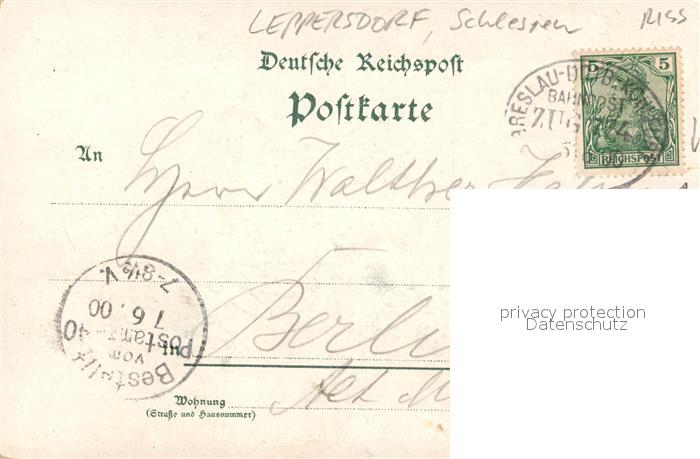 LEPPERSDORF, Schlesien RISS
Deutsche Reichspost
Postkarte
5 5
REICHSPOST
BRESLAU-
BAHNPOST
ZUG
An
Herrn Walther
Berlin
Alt
Bestellt
vom
Postamt 40
7. 6. 00
7-8½ V.
Wohnung
(Straße und Hausnummer)
privacy protection
Datenschutz